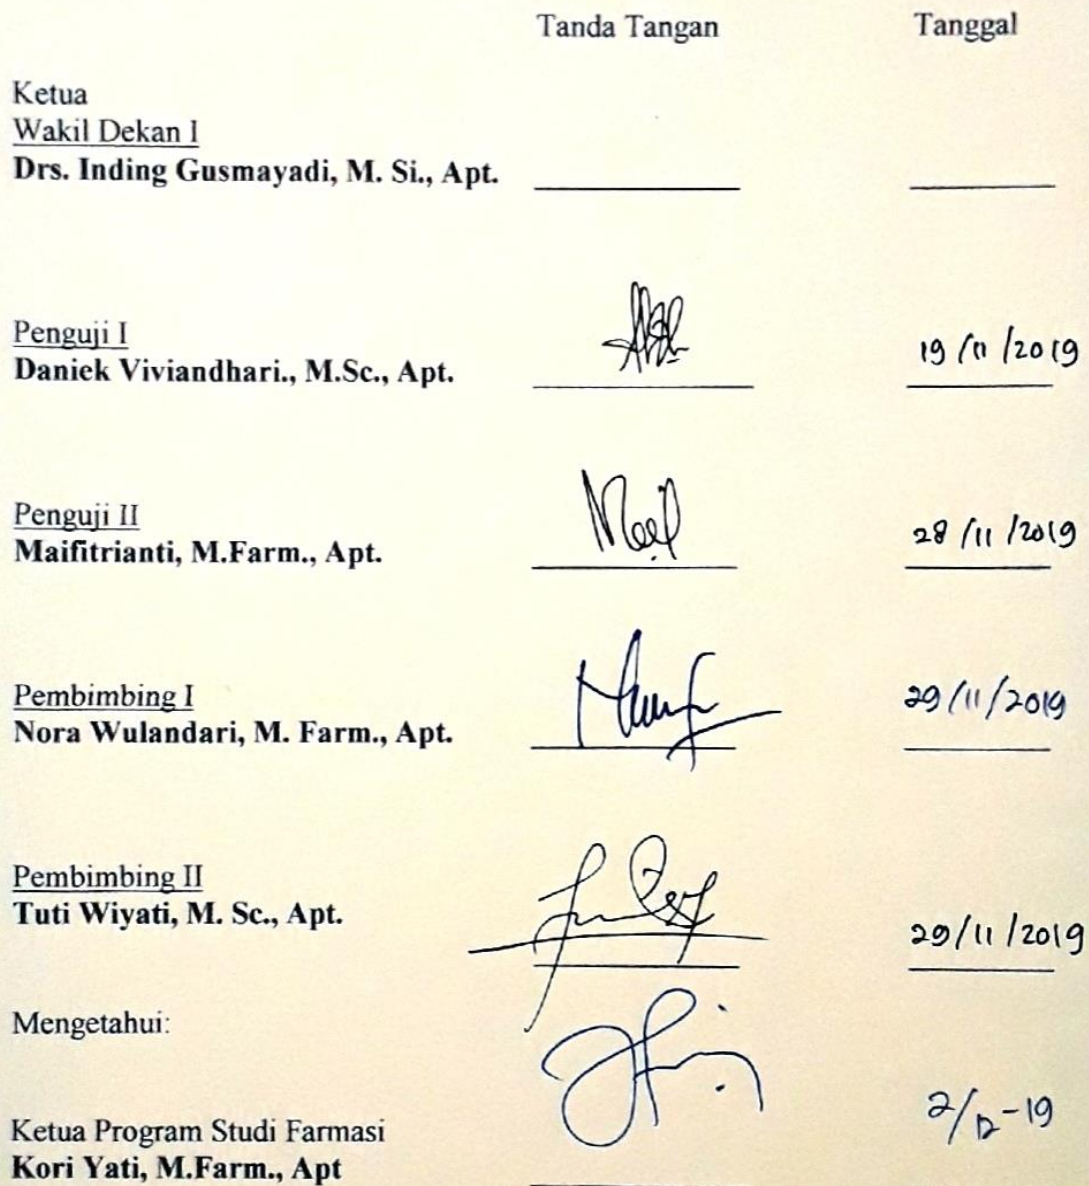 Tanda Tangan Tanggal
Ketua
Wakil Dekan I
Drs. Inding Gusmayadi, M. Si., Apt.
Penguji I
Daniek Viviandhari., M.Sc., Apt. 19/11/2019
Penguji II
Maifitrianti, M.Farm., Apt. 28/11/2019
Pembimbing I
Nora Wulandari, M. Farm., Apt. 29/11/2019
Pembimbing II
Tuti Wiyati, M. Sc., Apt. 29/11/2019
Mengetahui:
Ketua Program Studi Farmasi 2/12-19
Kori Yati, M.Farm., Apt